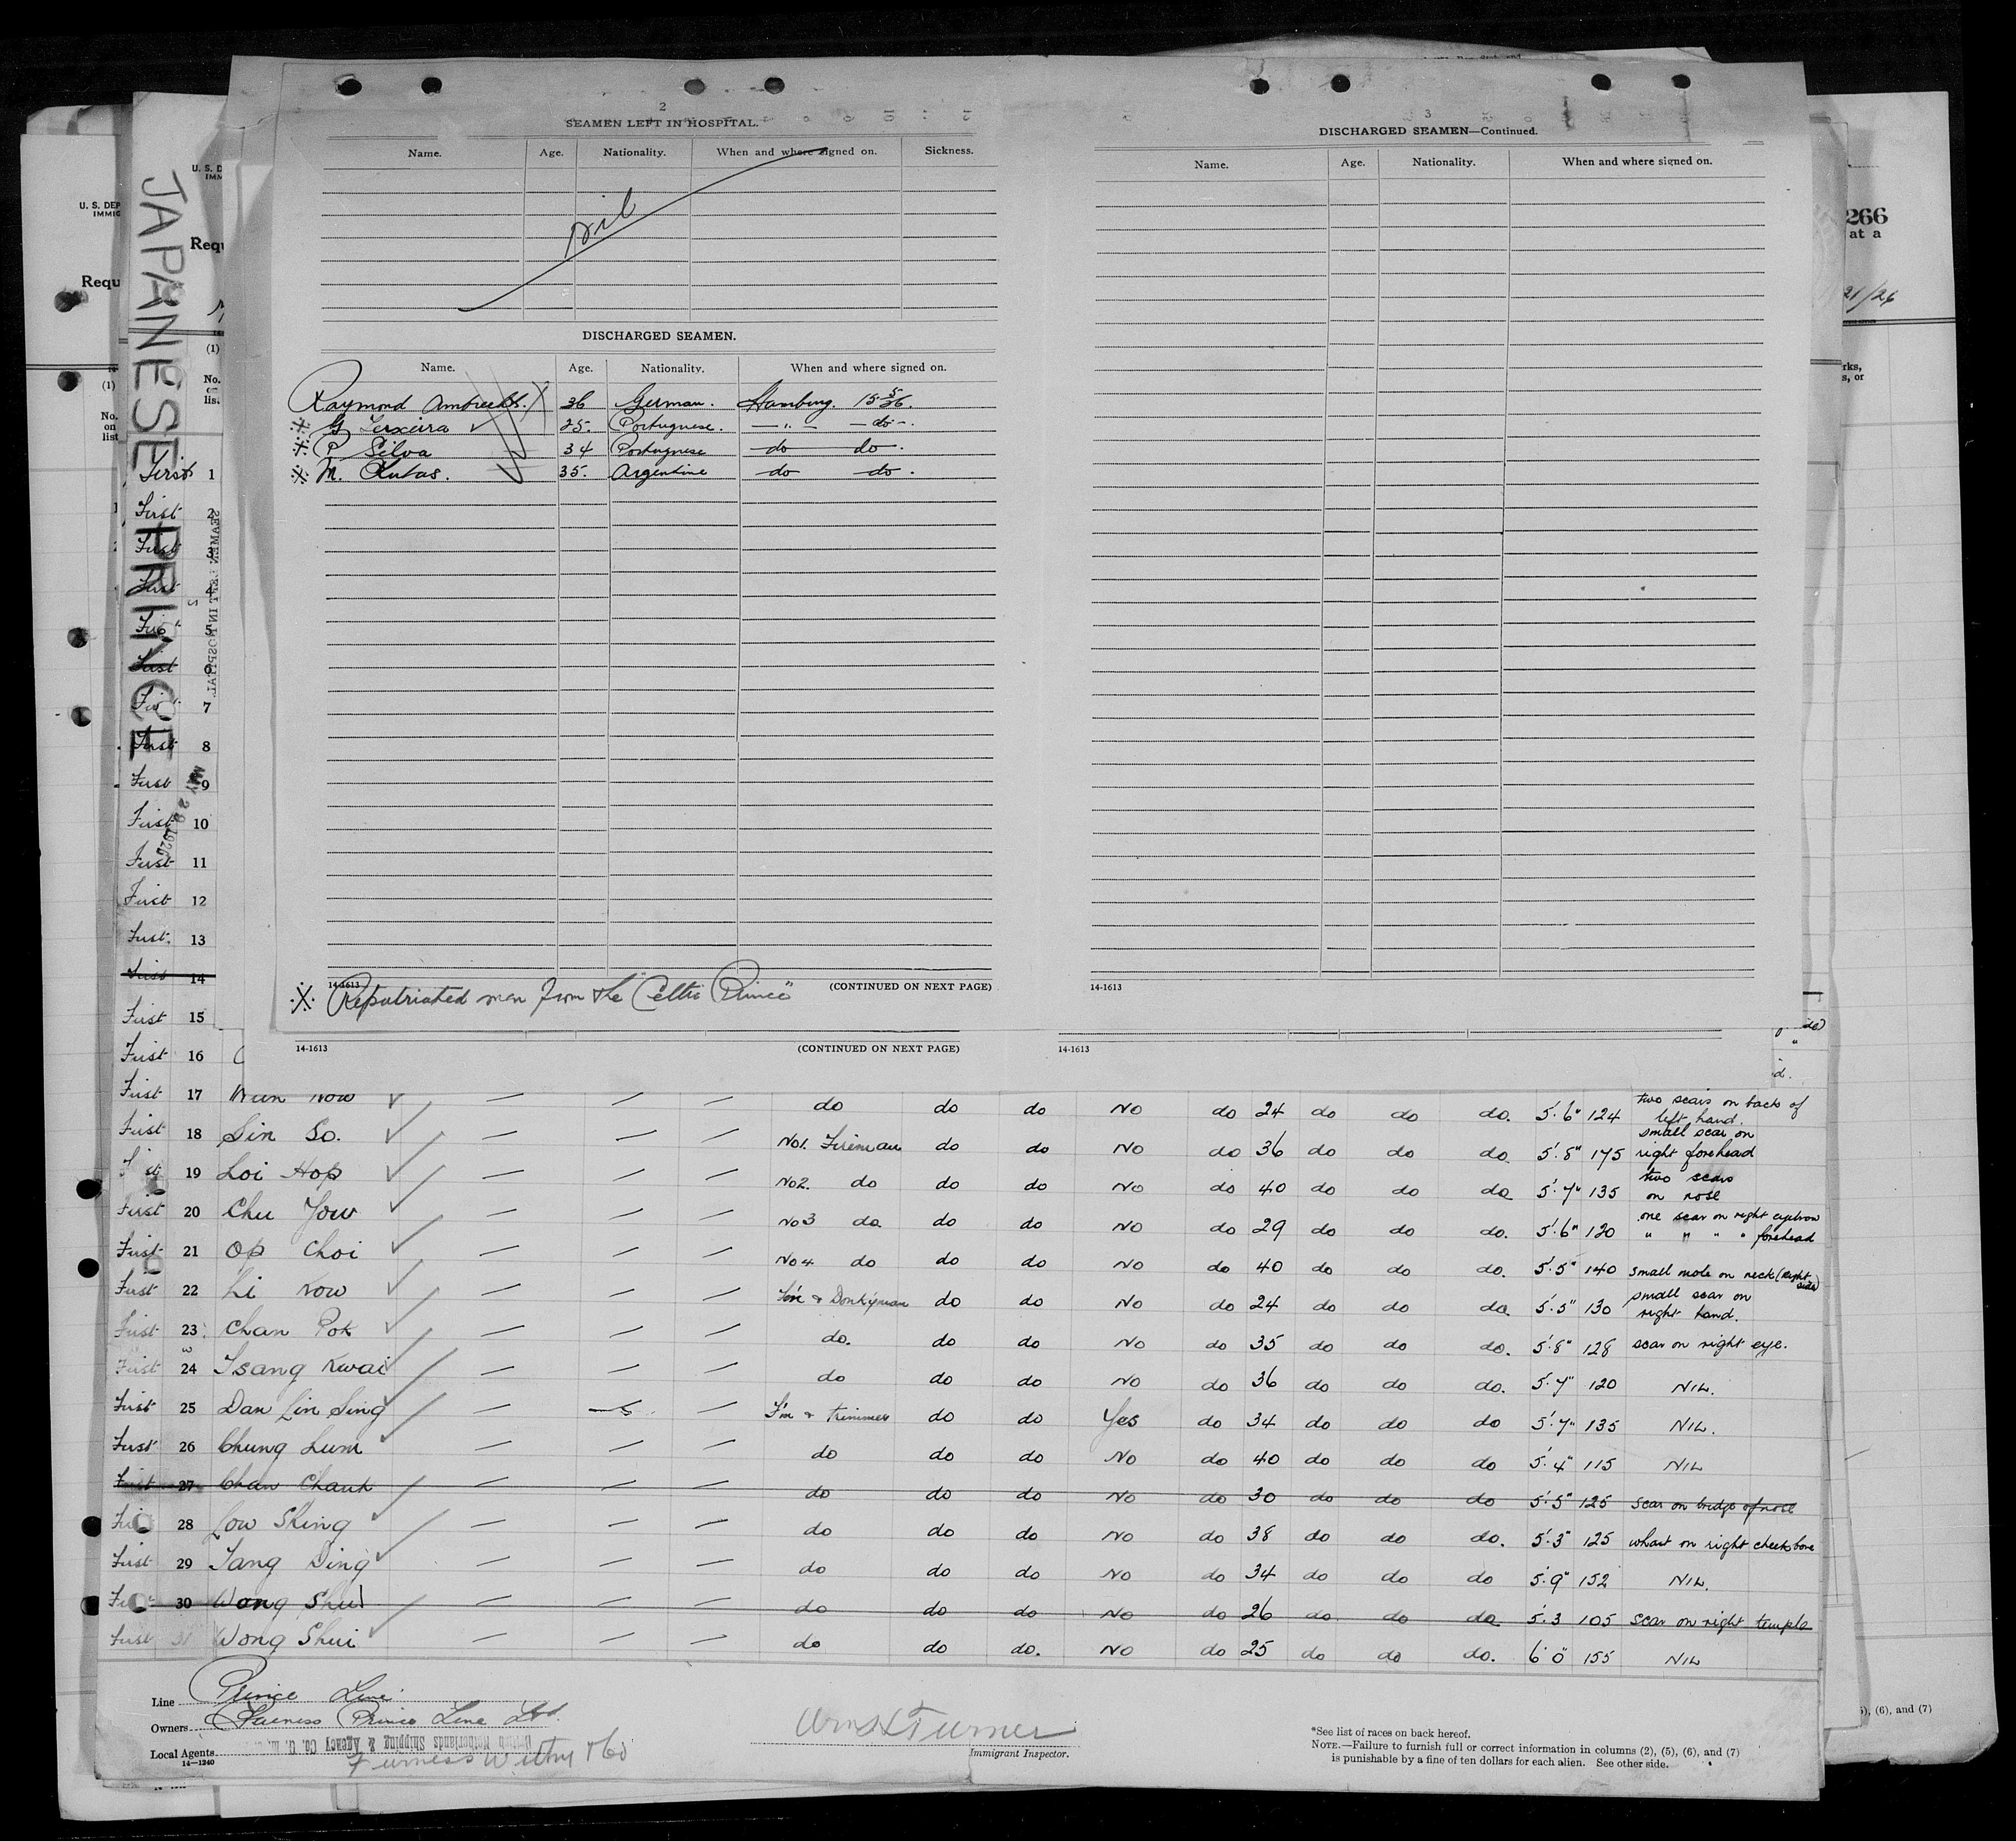 2
SEAMEN LEFT IN HOSPITAL.
Name. Age. Nationality. When and where signed on. Sickness.
Nil
DISCHARGED SEAMEN.
Name. Age. Nationality. When and where signed on.
Raymond 36 German. Hamburg. 15 5/26.
※ G Teixeira 25. Portuguese. — " — — do —.
※ P Silva 34 Portuguese do do.
※ M. 35. Argentine do do.
14-1613 (CONTINUED ON NEXT PAGE)
※ Repatriated men from the "Celtic Prince"
3
DISCHARGED SEAMEN—Continued.
Name. Age. Nationality. When and where signed on.
14-1613
14-1613 (CONTINUED ON NEXT PAGE) 14-1613
JAPANESE PRINCE
MAY 28 1926
SEAMEN LEFT IN HOSPITAL
U. S. DEP
IMMIG
Requ
U. S. D
IMM
Requ
(1)
No.
on
list
(1)
No.
on
lis.
266
at a
21/26
rks,
s, or
First 1
First 2
First 3
First 4
First 5
First 6
First 7
First 8
First 9
First 10
First 11
First 12
First. 13
First 14
First 15
First 16
First 17 Kow — — — do do do No do 24 do do do. 5'.6" 124 two scars on back of left hand.
First 18 Sin So. — — — No1. Fireman do do No do 36 do do do 5'.8" 175 small scar on right forehead
First 19 Loi Hop — — — No2. do do do No do 40 do do do 5'.7" 135 two scars on nose
First 20 Chu Yow — — — No3 do do do No do 29 do do do. 5'.6" 120 one scar on right eyebrow " " " " forehead
First 21 Op Choi — — — No4 do do do No do 40 do do do. 5'.5" 140 small mole on neck (right side)
First 22 Li Kow — — — F'm & Donkyman do do No do 24 do do do. 5'.5" 130 small scar on right hand.
First 23 Chan Pok — — — do. do do No do 35 do do do. 5'.8" 128 scar on right eye.
First 24 Tsang Kwai — — — do do do No do 36 do do do. 5'.7" 120 NIL.
First 25 Dan Lin Sing — — — F'm & Trimmer do do Yes do 34 do do do 5'.7" 135 NIL.
First 26 Chung Lum — — — do do do No do 40 do do do 5'.4" 115 NIL
First 27 Chan Chank — — — do do do No do 30 do do do 5'.5" 125 scar on bridge of nose
First 28 Low Shing — — — do do do No do 38 do do do. 5'.3" 125 whart on right cheek bone
First 29 Tang Ding — — — do do do No do 34 do do do 5'.9" 152 NIL.
First 30 Wong Shui — — — do do do No do 26 do do do 5'.3 105 scar on right temple
First 31 Wong Shui — — — do do do. No do 25 do do do. 6'0" 155 NIL
Line Prince Line
Owners Furness Prince Line Ltd.
Local Agents Furness Withy & Co
14—1240
Turner
Immigrant Inspector.
*See list of races on back hereof.
NOTE.—Failure to furnish full or correct information in columns (2), (5), (6), and (7)
is punishable by a fine of ten dollars for each alien. See other side.
5), (6), and (7)